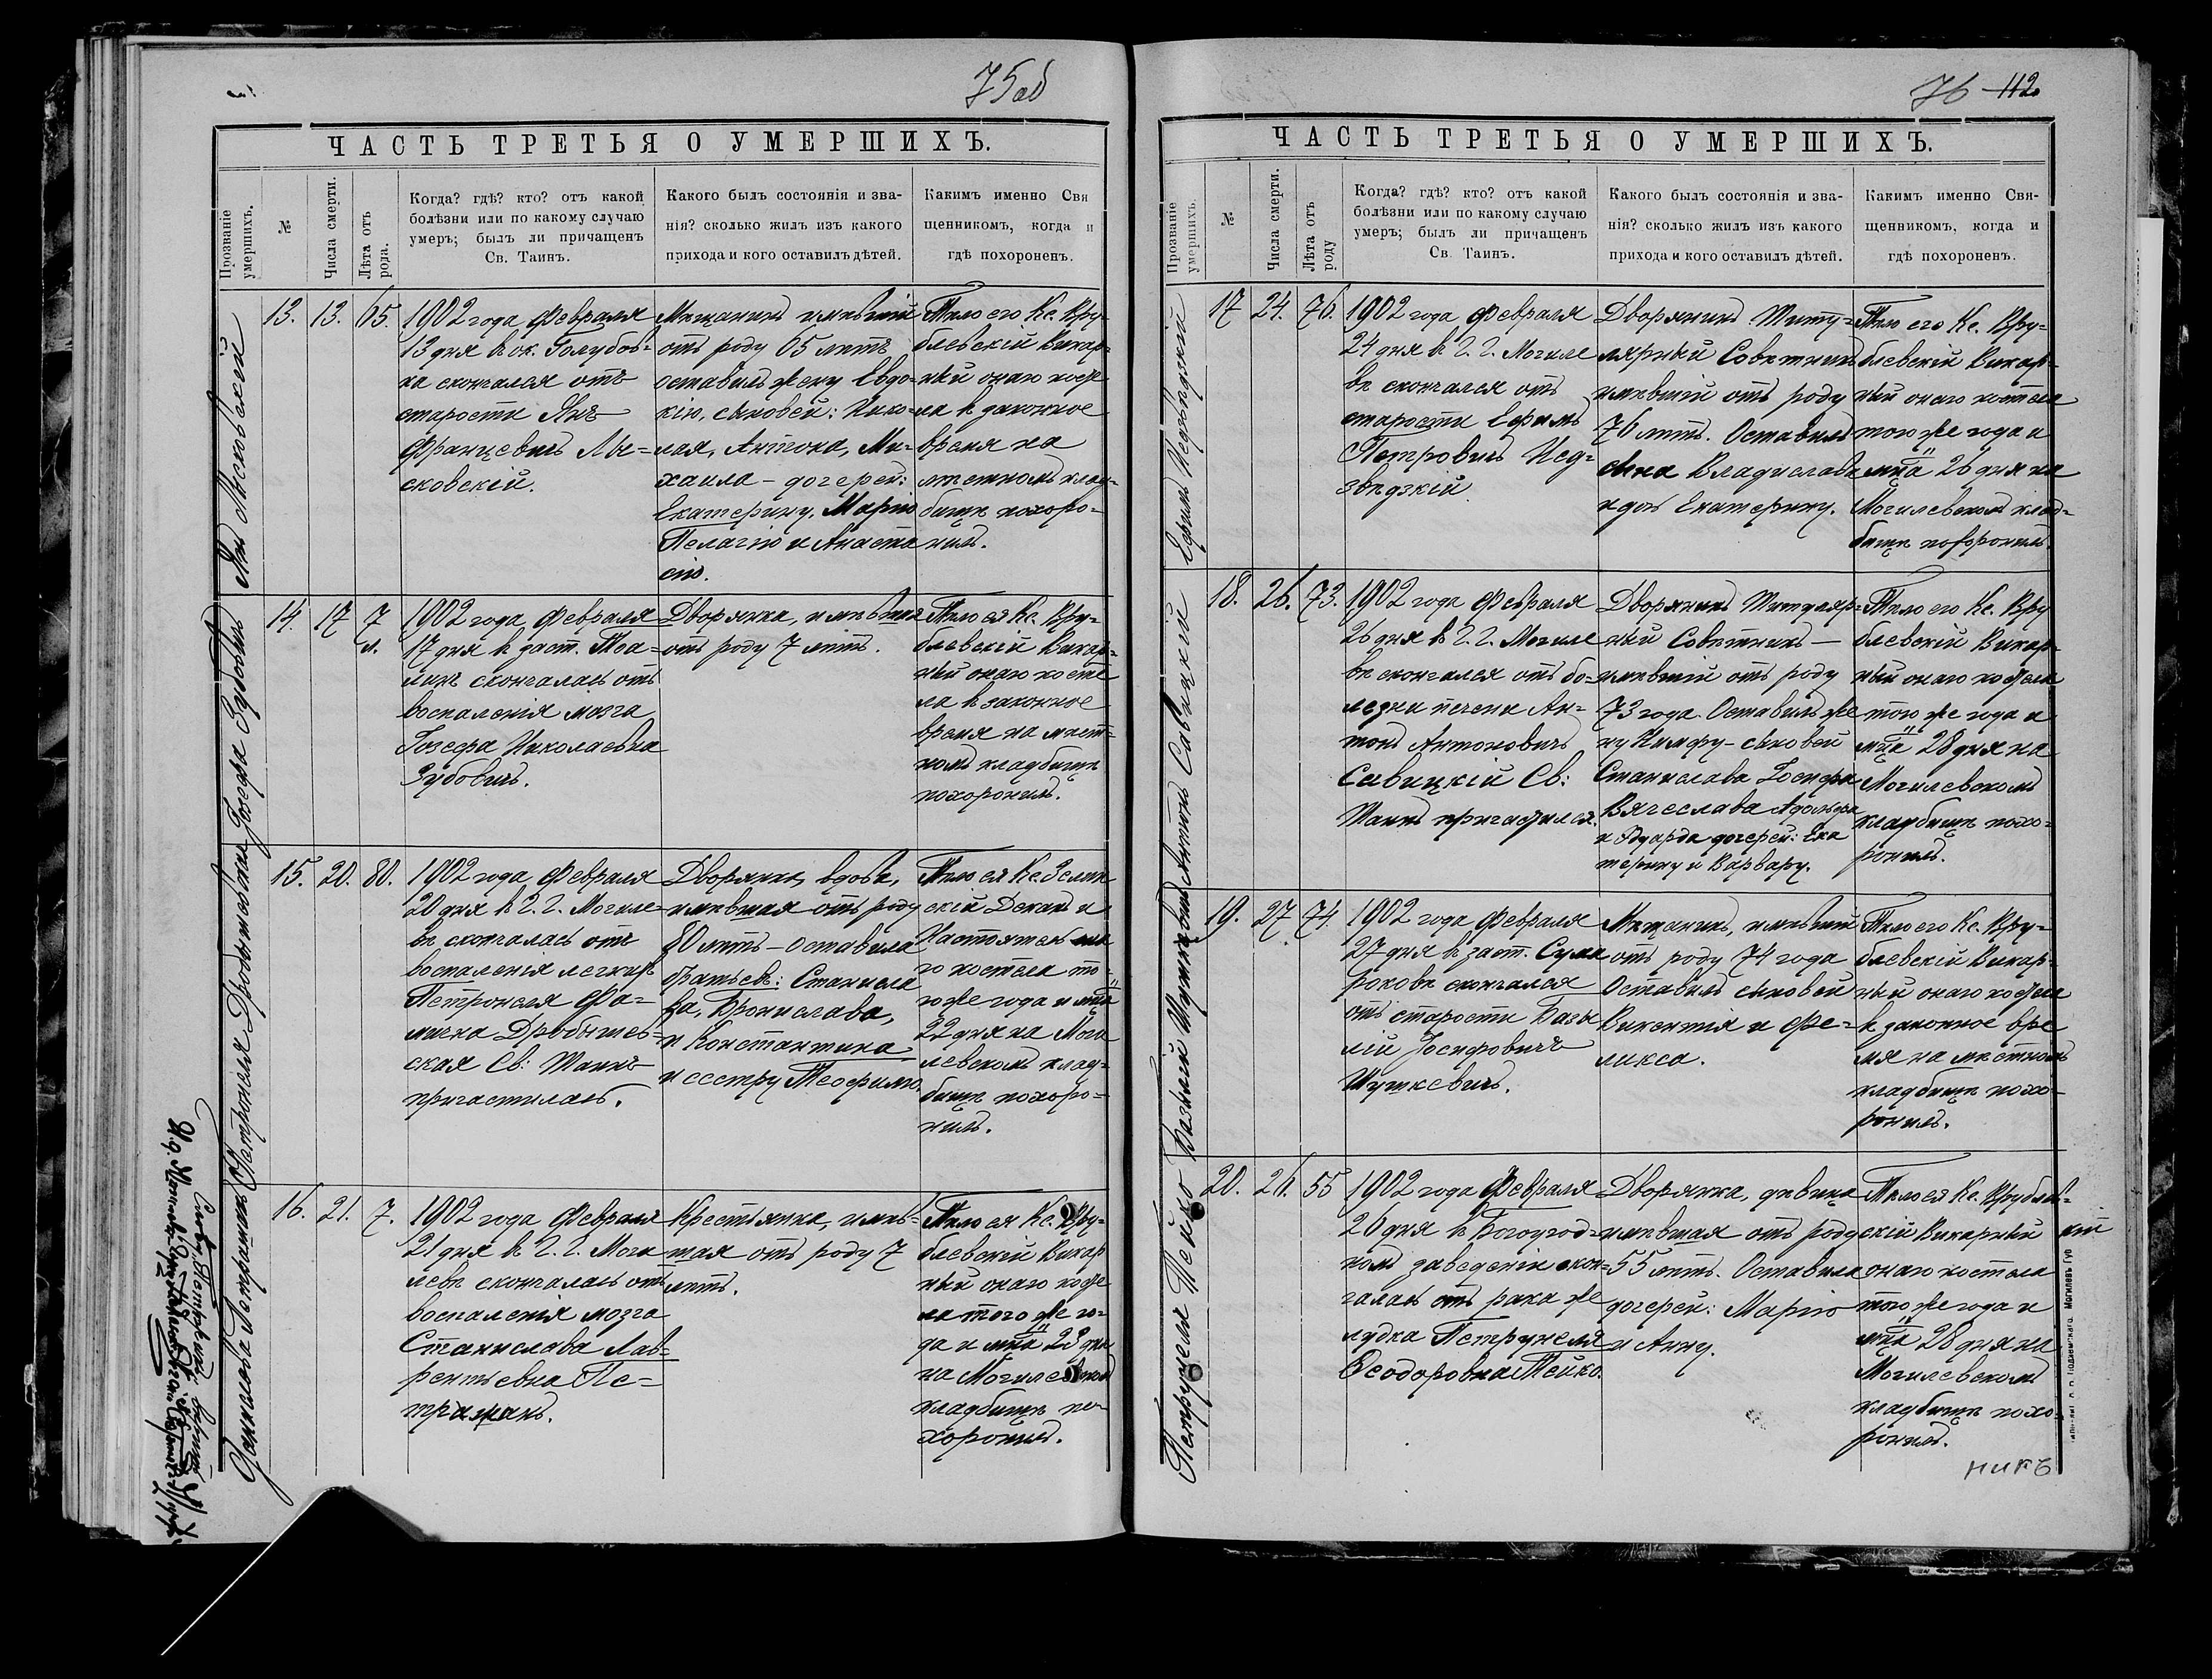 75 об
ЧАСТЬ ТРЕТЬЯ О УМЕРШИХЪ.
Прозваніе умершихъ.
№
Числа смерти.
Лѣта отъ рода.
Когда? гдѣ? кто? отъ какой
болѣзни или по какому случаю
умеръ; былъ ли причащенъ
Св. Таинъ.
Какого былъ состоянія и зва-
нія? сколько жилъ изъ какого
прихода и кого оставилъ дѣтей.
Какимъ именно Свя
щенникомъ, когда и
гдѣ похороненъ.
Янъ Лысковскій
13. 13. 65.
1902 года Февраля
13 дня въ ок. Голубов-
ка скончался отъ
старости Янъ
Францевичъ Лы-
сковскій.
Мѣщанинъ имѣвшій
отъ роду 65 лѣтъ
оставилъ жену Евдо-
кію, сыновей: Нико-
лая, Антона, Ми-
хаила – дочерей:
Екатерину, Марію
Пелагію и Анаста
сію.
Тѣло его Кс. Вру-
блевскій Викар-
ный онаго косте
ла въ законное
время на
мѣстномъ клад-
бищѣ похоро-
нилъ.
Іозефа Зубовичъ
14. 17 7 л.
1902 года Февраля
17 дня въ заст.
скончалась отъ
воспаленія мозга
Іозефа Николаевна
Зубовичъ.
Дворянка, имѣвшая
отъ роду 7 лѣтъ.
Тѣло ея Кс. Вру-
блевскій Викар-
ный онаго косте
ла въ законное
время на мѣст-
номъ кладбищѣ
похоронилъ.
Петронеля Дробышевская
15. 20. 80.
1902 года Февраля
20 дня въ Г. Г. Могиле-
вѣ скончалась отъ
воспаленія легкихъ
Петронеля Фа-
мина Дробышев-
ская Св: Таинъ
причастилась.
Дворянка, вдова,
имѣвшая отъ роду
80 лѣтъ – оставила
братьевъ: Станисла
ва, Бронислава,
и Константина
и сестру Теофилю
Тѣло ея Кс.
скій Деканъ и
Настоятель
го костела то-
го же года и мца
22 дня на Моги
левскомъ клад-
бищѣ похоро-
нилъ.
16. 21. 7.
1902 года Февраля
21 дня въ Г. Г. Моги
левѣ скончалась отъ
воспаленія мозга
Станислава Лав-
рентьевна Пе-
Крестьянка, имѣв-
шая отъ роду 7
лѣтъ.
Тѣло ея Кс. Вру-
блевскій Викар
ный онаго косте
ла того же го-
да и мца 23 дня
на Могилевскомъ
кладбищѣ по-
хоронилъ.
76 112
ЧАСТЬ ТРЕТЬЯ О УМЕРШИХЪ.
Прозваніе умершихъ.
№
Числа смерти.
Лѣта отъ роду
Когда? гдѣ? кто? отъ какой
болѣзни или по какому случаю
умеръ; былъ ли причащенъ
Св. Таинъ.
Какого былъ состоянія и зва-
нія? сколько жилъ изъ какого
прихода и кого оставилъ дѣтей.
Какимъ именно Свя-
щенникомъ, когда и
гдѣ похороненъ.
Ефимъ Недзвѣдзкій
17 24. 76.
1902 года Февраля
24 дня въ Г. Г. Могиле
вѣ скончался отъ
старости Ефимъ
Петровичъ Нед-
звѣдзкій.
Дворянинъ Титу-
лярный Совѣтникъ
имѣвшій отъ роду
76 лѣтъ. Оставилъ
сына Владислава
и дочь Екатерину.
Тѣло его Кс. Вру-
блевскій Викар-
ный онаго костела
того же года и
мца 26 дня на
Могилевскомъ клад-
бищѣ похоронилъ.
Антонъ Савицкій
18. 26. 73.
1902 года Февраля
26 дня въ Г. Г. Могиле
вѣ скончался отъ бо-
лезни печени Ан-
тонъ Антоновичъ
Савицкій Св:
Таинъ причастился.
Дворянинъ Титуляр-
ный Совѣтникъ –
имѣвшій отъ роду
73 года. Оставилъ же
ну Нимфу – сыновей
Станислава Іосифа
Вячеслава Адольфа
и Эдуарда дочерей: Ека
терину и Варвару.
Тѣло его Кс. Вру
блевскій Викар-
ный онаго костела
того же года и
мца 28 дня на
Могилевскомъ
кладбищѣ похо-
ронилъ.
Базылій Шуткевичъ
19. 27 74.
1902 года Февраля
27 дня въ заст.
роковѣ скончался
отъ старости Базы
лій Іосифовичъ
Шуткевичъ.
Мѣщанинъ, имѣвшій
отъ роду 74 года
Оставилъ сыновей
Викентія и Фе-
ликса.
Тѣло его Кс. Вру-
блевскій Викар-
ный онаго костела
въ законное вре
мя на мѣстномъ
кладбищѣ похо-
ронилъ.
Петрунеля Тейко
20. 26. 55
1902 года Февраля
26 дня въ Богоугод-
номъ заведеніи скон-
чалась отъ рака же
лудка Петрунеля
Ѳеодоровна Тейко.
Дворянка, дѣвица
имѣвшая отъ роду
55 лѣтъ. Оставила
дочерей: Марію
и Анну.
Тѣло ея Кс. Врублев-
скій Викарный
онаго костела
того же года и
мца 28 дня на
Могилевскомъ
кладбищѣ похо-
ронилъ.
никъ